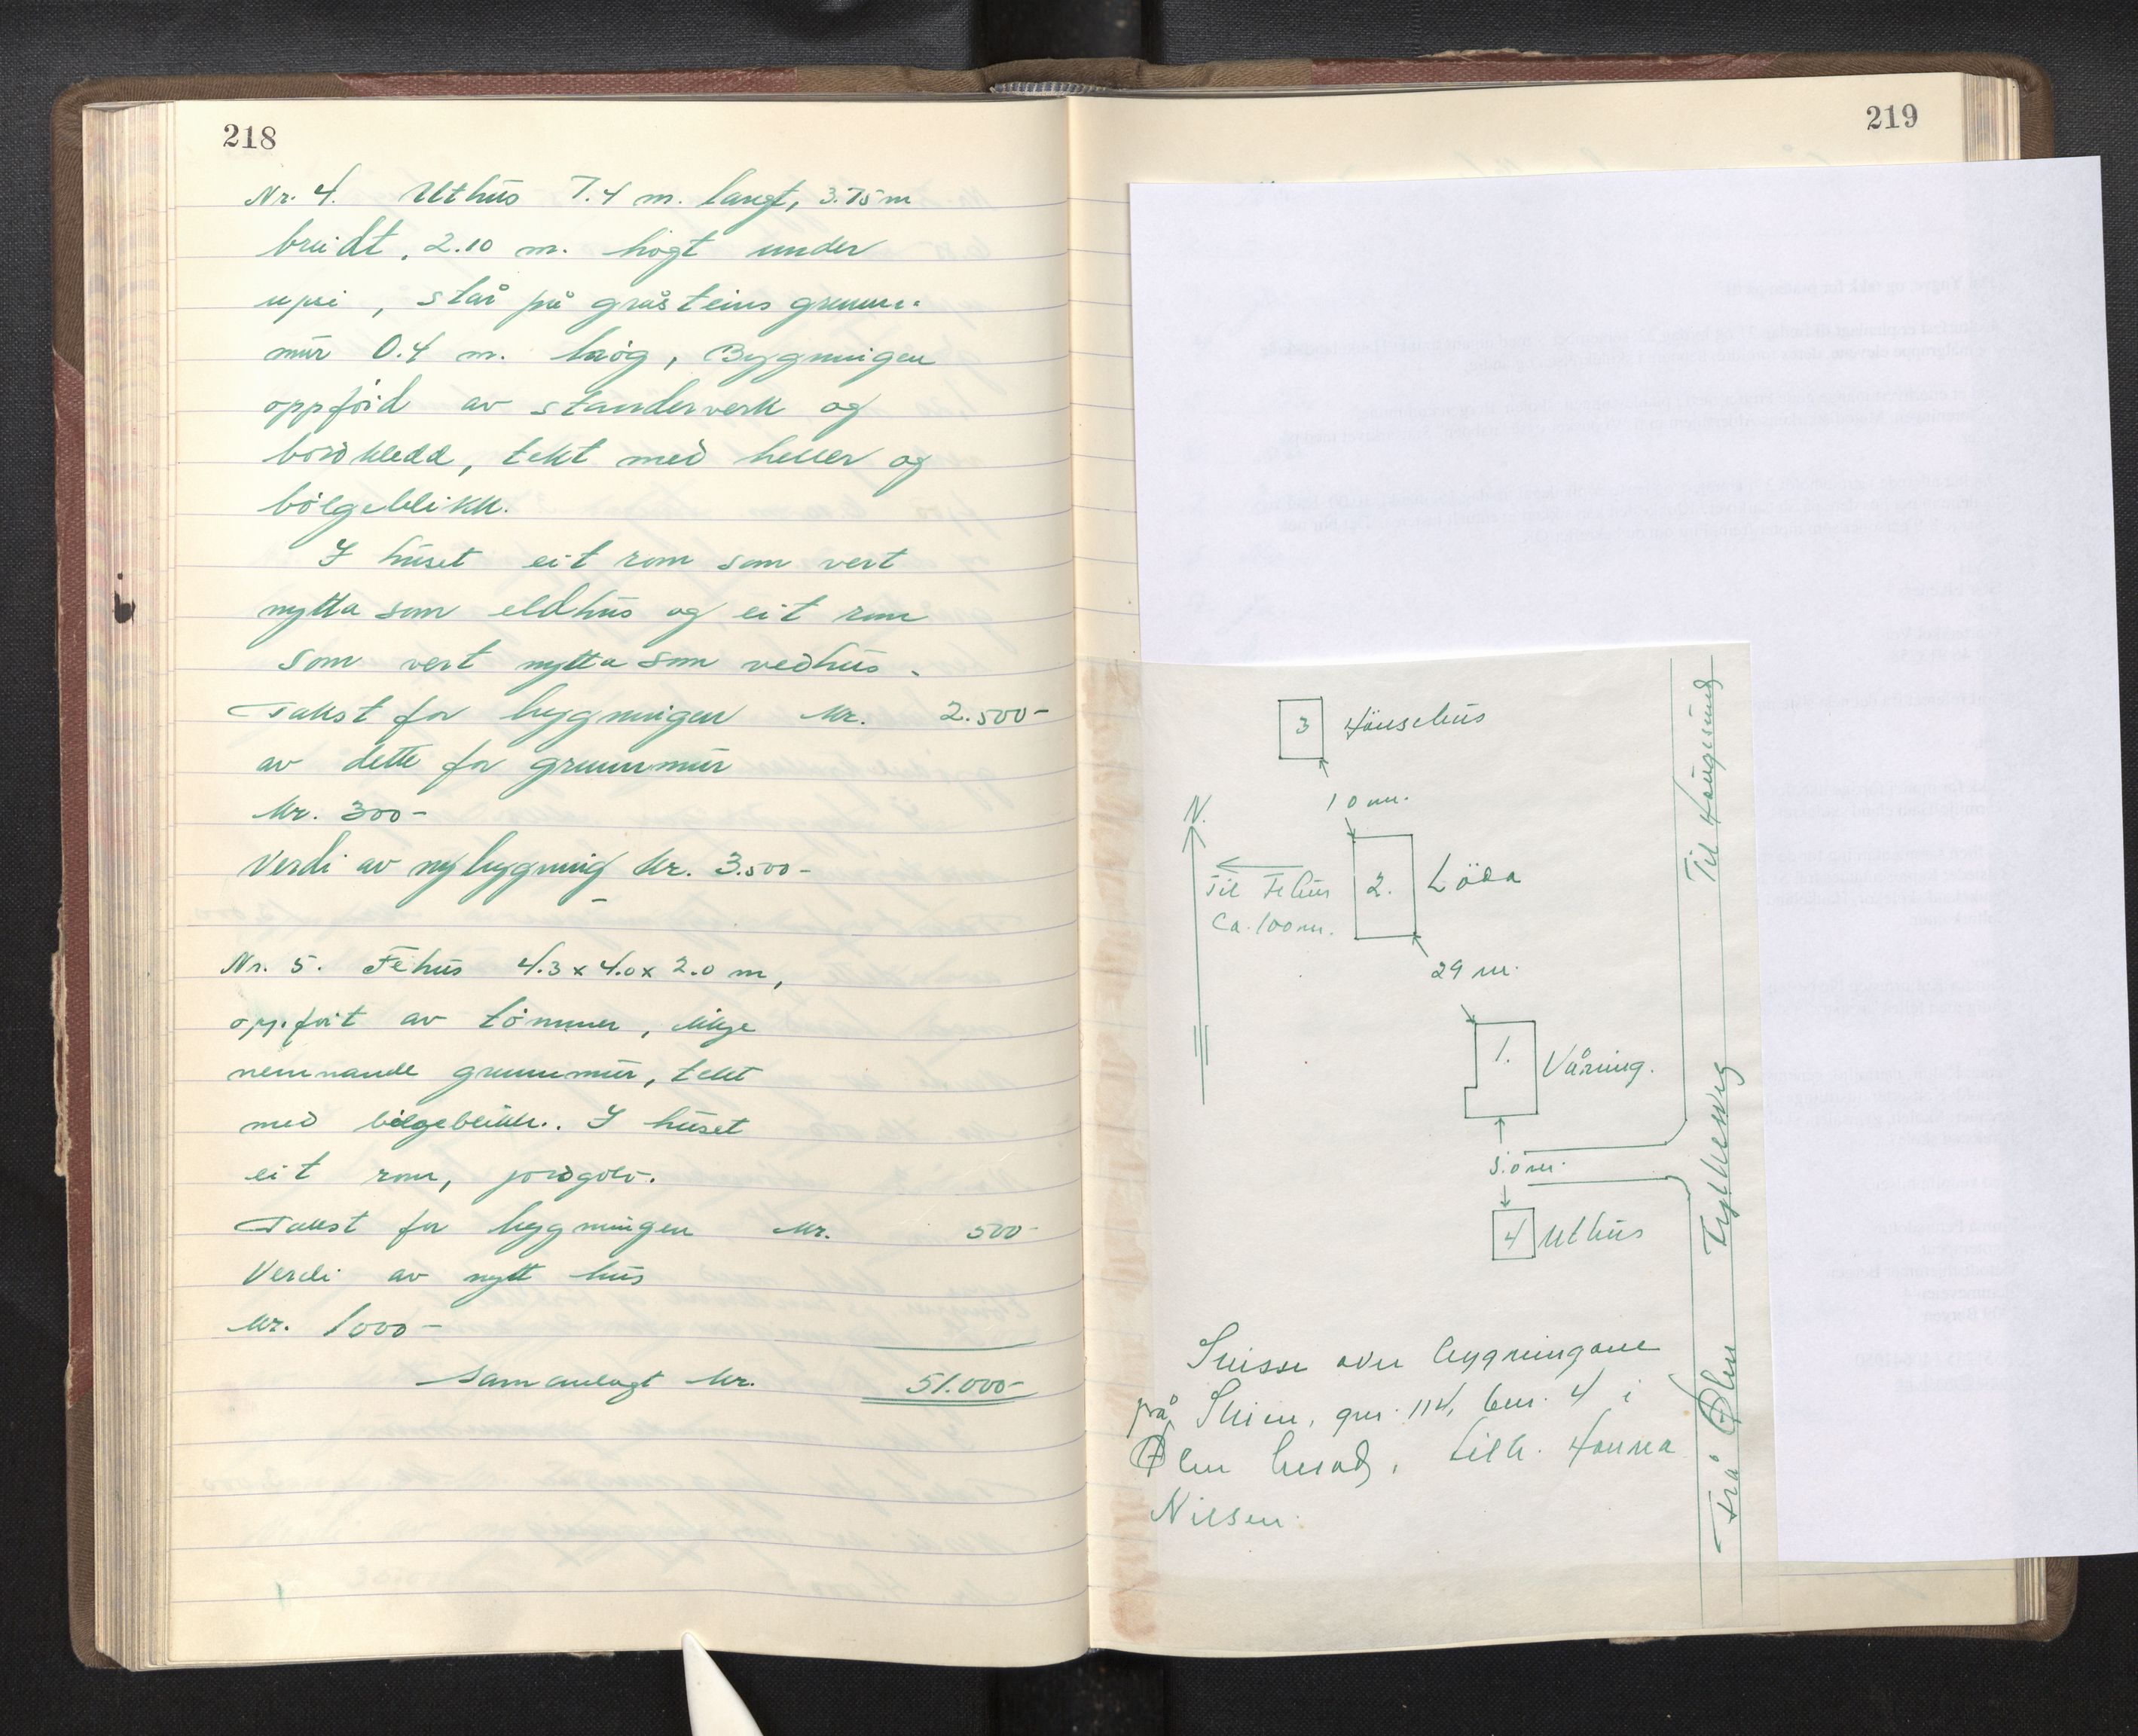 218
Nr. 4. Uthus 7.4 m. langt, 3.75 m
breidt, 2.10 m. högt under
upsi, står på gråsteins grunn-
mur 0.4 m. høg, Bygningen
oppförd av standerverk og
bordkledd, tekt med heller og
bölgeblikk.
I huset eit rom som vert
nytta som eldhus og eit rom
som vert nytta som vedhus.
Takst for bygningen kr. 2.500-
av dette for grunnmur
kr. 300-
Verdi av ny bygning kr. 3.500-
Nr. 5. Fehus 4.3 x 4.0 x 2.0 m,
oppfört av tömmer, ikkje
nemnande grunnmur, tekt
med bölgeblikk. I huset
eit rom, jordgolv.
Takst for bygningen kr. 500-
Verdi av nytt hus
kr. 1000-
Samanlagt kr. 51.000-
219
3 Hönsehus
10 m.
N.
Til Fehus
Ca. 100 m.
2. Löda
29 m.
1. Våning.
5.0 m.
4 Uthus
Til Haugesund
Fylkesveg
Frå Ølen
Skisse over bygningane
på Skien, gnr. 114, bnr. 4 i
Ølen herad, tilh. Hanna
Nilsen.